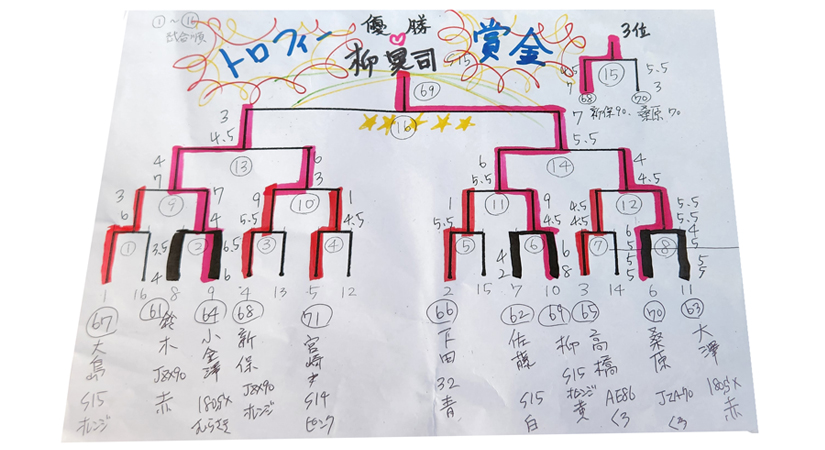 ①～⑯
試合順
トロフィー
優勝
柳晃司
S15
賞金
3位
⑮
7
5.5
3
68
70
新保90、桑原70
69
⑯
3
4.5
7
5.5
⑬
⑭
4
7
6
3
6
5.5
4
4.5
⑨
⑩
⑪
⑫
3
6
7
4
9
5.5
1
4.5
1
5.5
9
4.5
4.5
4.5
5.5
5.5
① ② ③ ④ ⑤ ⑥ ⑦ ⑧
3.5
4
6.5
6
4
2
6
8
6
5
5
5
4
5
5
5
1 16 8 9 4 13 5 12 2 15 7 10 3 14 6 11
67 大島 S15 オレンジ
61 鈴木 JZX90 赤
64 小金澤 180SX むらさき
68 新保 JZX90 オレンジ
71 宮崎 S14 ピンク
66 下田 32 青
62 佐藤 S15 白
69 柳 S15 オレンジ 黄
65 高橋 AE86 くろ
70 桑原 JZA70 くろ
63 大澤 180SX 赤